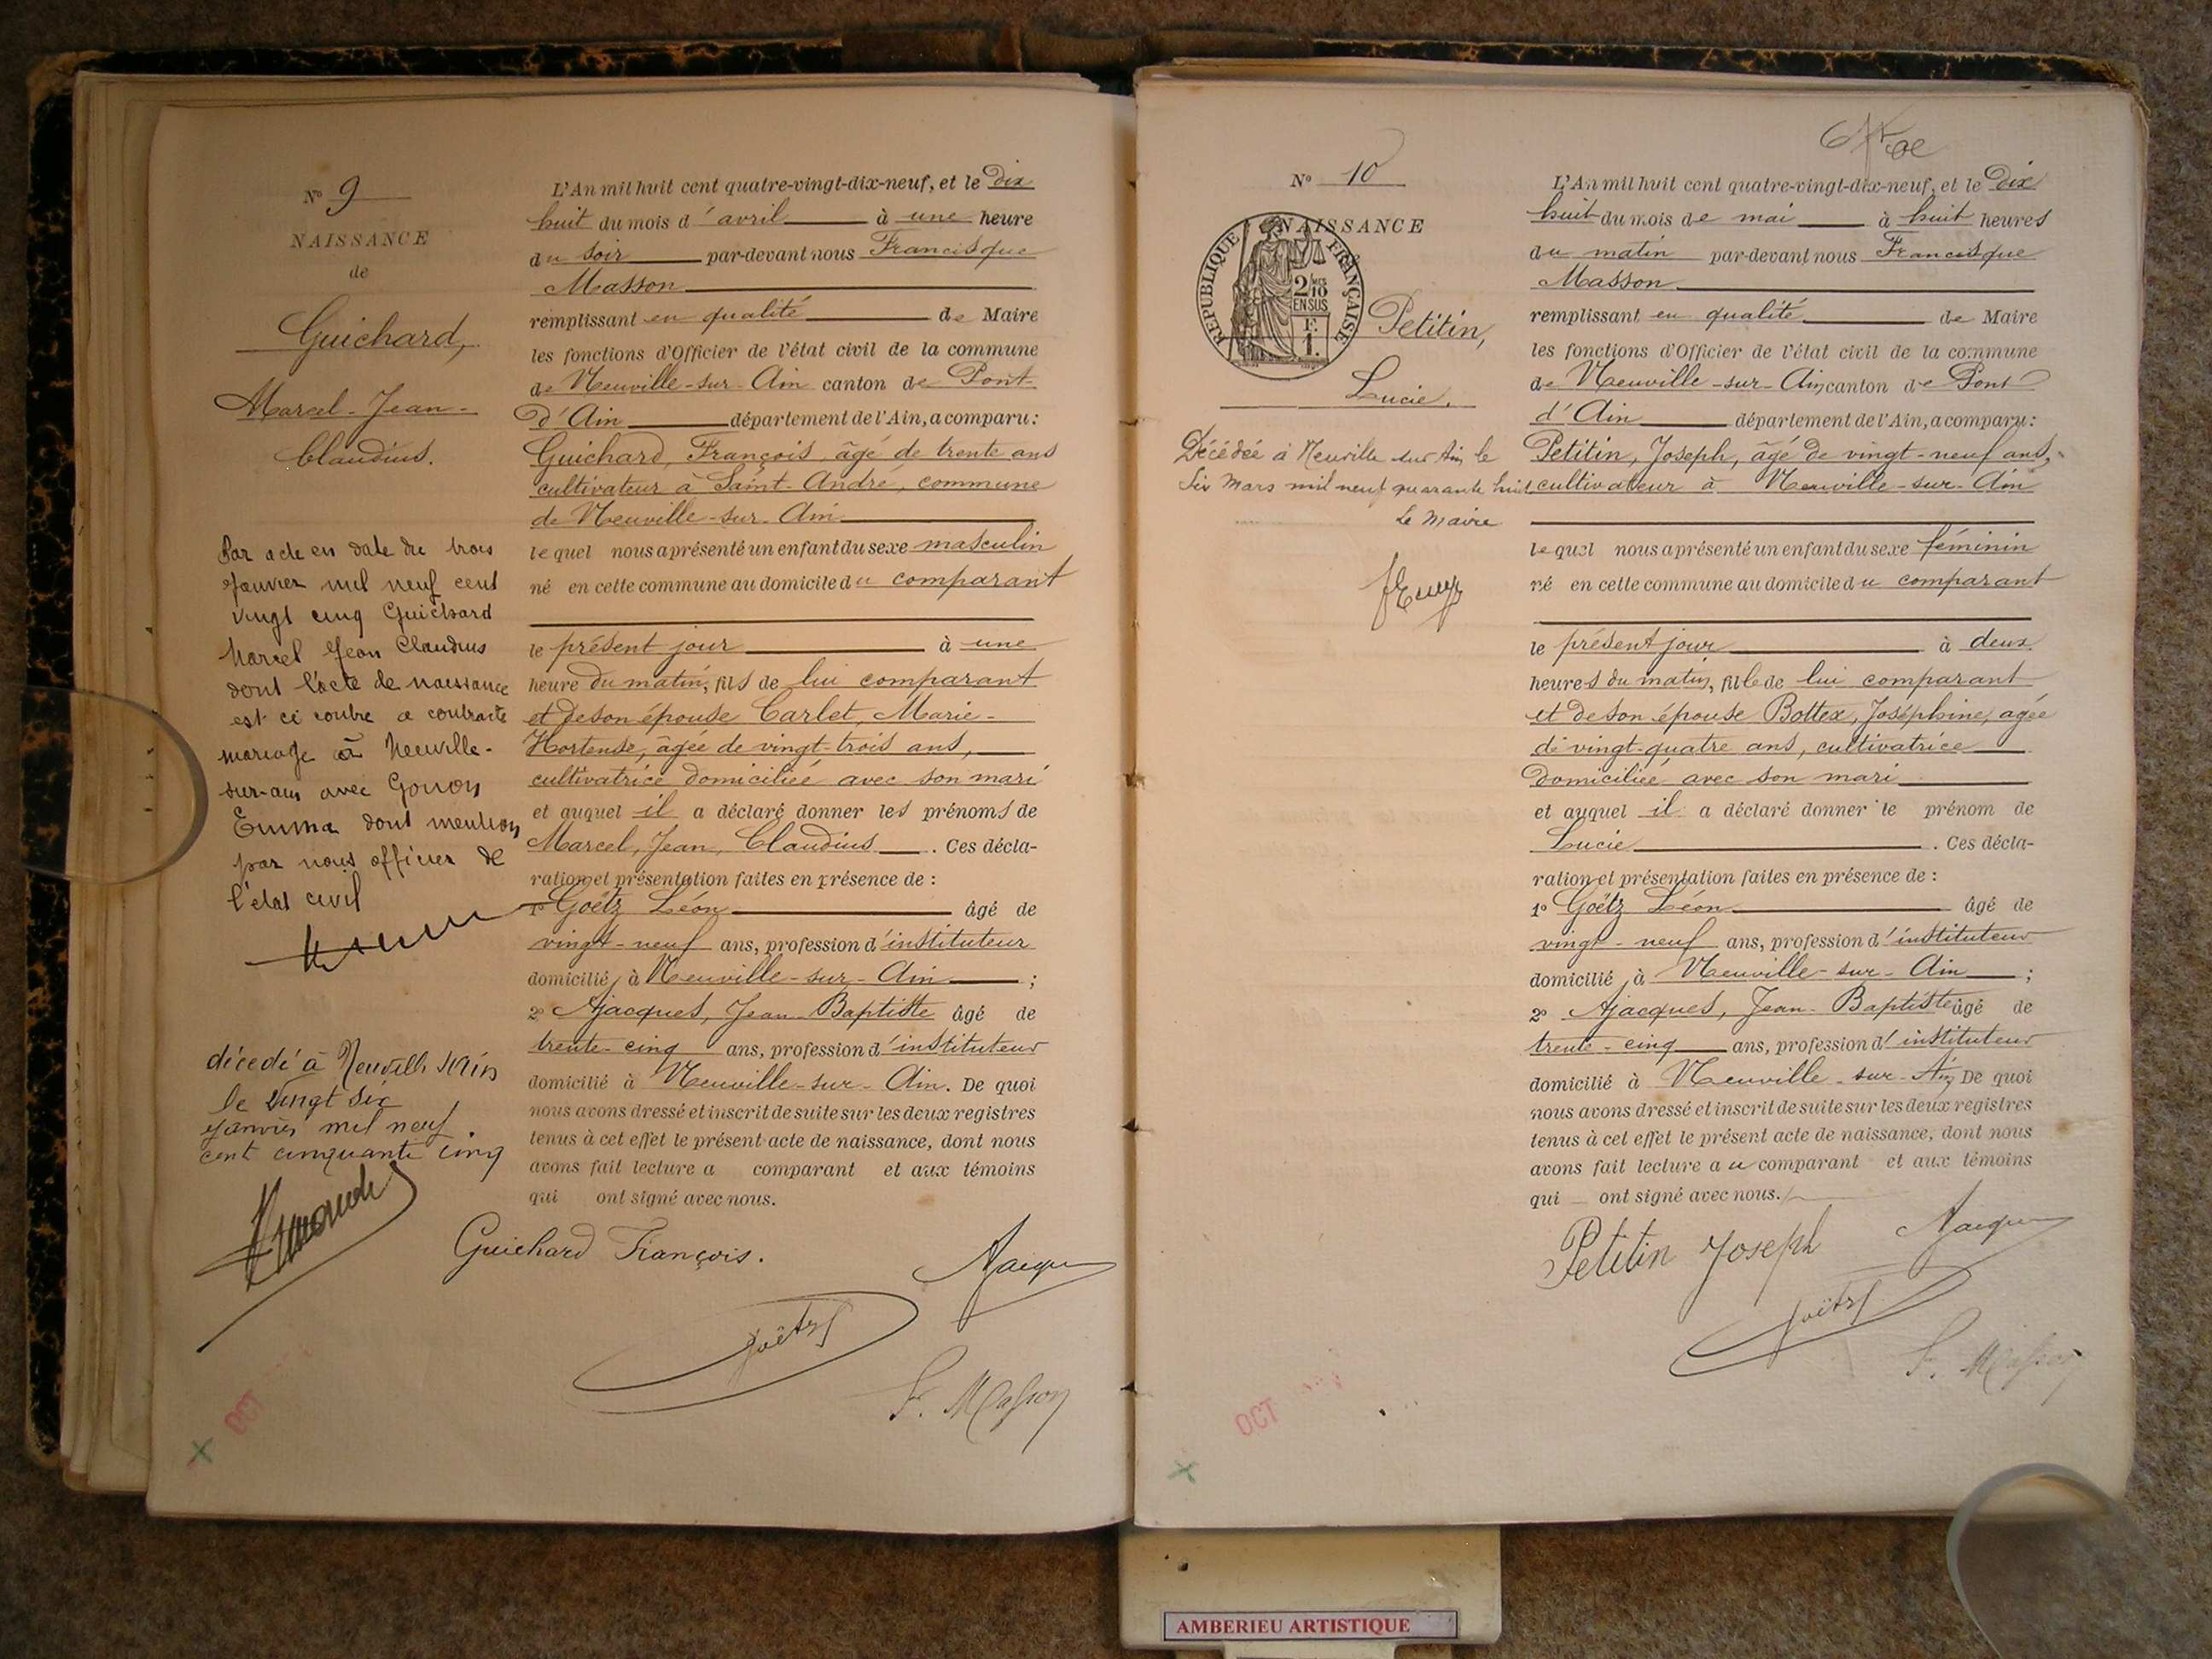 N° 9
NAISSANCE
de
Guichard,
Marcel-Jean-
Claudius.
Par acte en date du trois
Janvier mil neuf cent
vingt cinq Guichard
Marcel Jean Claudius
dont l'acte de naissance
est ci contre a contracté
mariage à Neuville-
sur-ain avec Gonon
Emma dont mention
par nous officier de
l'état civil
décédé à Neuville s/Ain
le Vingt six
Janvier mil neuf
cent cinquante cinq
L'An mil huit cent quatre-vingt-dix-neuf, et le dix
huit du mois d'avril à une heure
du soir par-devant nous Francisque
Masson
remplissant en qualité de Maire
les fonctions d'Officier de l'état civil de la commune
de Neuville-sur-Ain canton de Pont-
d'Ain département de l'Ain, a comparu:
Guichard, François, âgé de trente ans
cultivateur à Saint-André, commune
de Neuville-sur-Ain
lequel nous a présenté un enfant du sexe masculin
né en cette commune au domicile du comparant
le présent jour à une
heure du matin, fils de lui comparant
et de son épouse Carlet, Marie-
Hortense, âgée de vingt-trois ans,
cultivatrice domiciliée avec son mari
et auquel il a déclaré donner les prénoms de
Marcel, Jean, Claudius. Ces décla-
ration et présentation faites en présence de :
1° Goëtz Léon âgé de
vingt-neuf ans, profession d'instituteur
domicilié à Neuville-sur-Ain ;
2° Ajacques, Jean-Baptiste âgé de
trente-cinq ans, profession d'instituteur
domicilié à Neuville-sur-Ain. De quoi
nous avons dressé et inscrit de suite sur les deux registres
tenus à cet effet le présent acte de naissance, dont nous
avons fait lecture a comparant et aux témoins
qui ont signé avec nous.
Guichard François.
Ajacques
Goëtz
F. Masson
OCT
N° 10
NAISSANCE
RÉPUBLIQUE FRANÇAISE
2/10
EN SUS
F.
1.
Petitin,
Lucie.
Décédée à Neuville sur Ain le
Six Mars mil neuf quarante huit
Le Maire
L'An mil huit cent quatre-vingt-dix-neuf, et le Dix
huit du mois de mai à huit heures
du matin par-devant nous Francisque
Masson
remplissant en qualité de Maire
les fonctions d'Officier de l'état civil de la commune
de Neuville-sur-Ain, canton de Pont
d'Ain département de l'Ain, a comparu:
Petitin, Joseph, âgé de vingt-neuf ans,
cultivateur à Neuville-sur-Ain
lequel nous a présenté un enfant du sexe féminin
né en cette commune au domicile du comparant
le présent jour à deux
heures du matin, fille de lui comparant
et de son épouse Bottex, Joséphine, agée
de vingt-quatre ans, cultivatrice
domiciliée avec son mari
et auquel il a déclaré donner le prénom de
Lucie. Ces décla-
ration et présentation faites en présence de :
1° Goëtz Léon âgé de
vingt-neuf ans, profession d'instituteur
domicilié à Neuville-sur-Ain ;
2° Ajacques, Jean-Baptiste âgé de
trente-cinq ans, profession d'instituteur
domicilié à Neuville-sur-Ain. De quoi
nous avons dressé et inscrit de suite sur les deux registres
tenus à cet effet le présent acte de naissance, dont nous
avons fait lecture au comparant et aux témoins
qui ont signé avec nous.
Petitin Joseph
Ajacques
Goëtz
F. Masson
OCT
AMBERIEU ARTISTIQUE